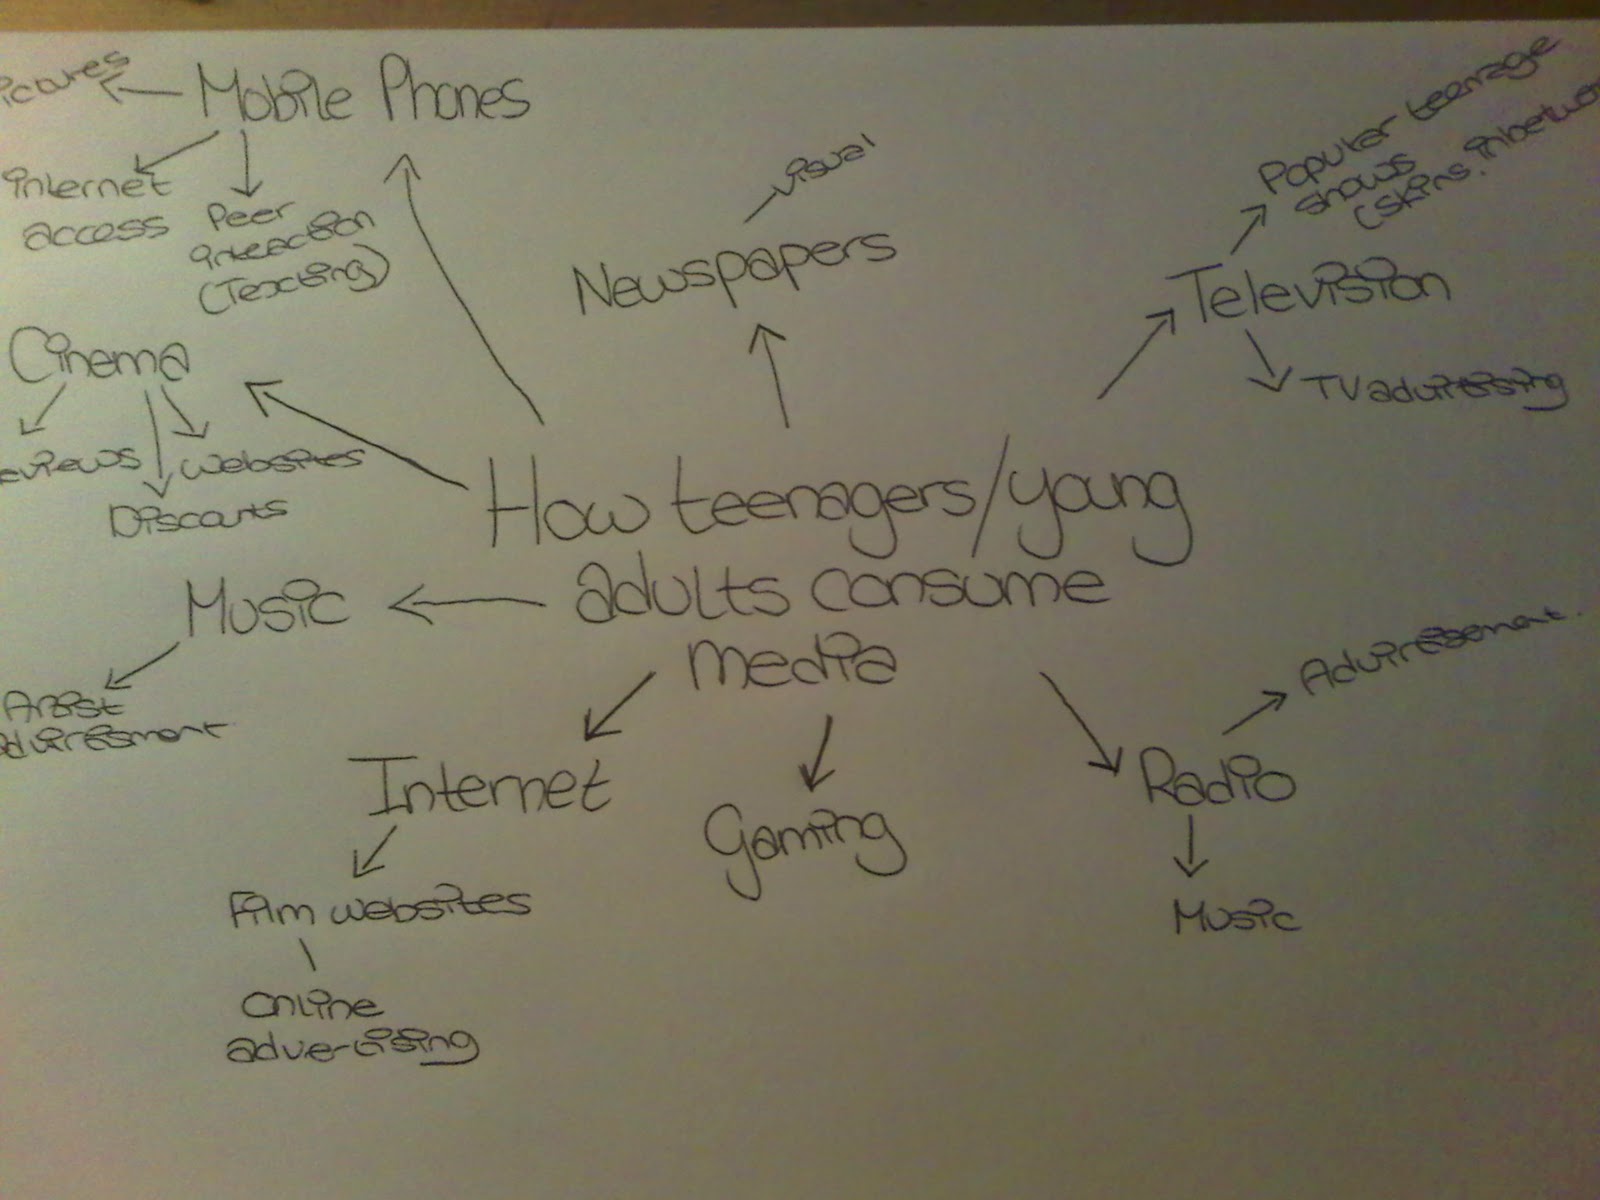 icotures
Mobile Phones
internet
access
Peer
inteaction
(Texting)
visual
Newspapers
Popular teenage
shows
(Skins, inbetwe
Television
TV advirtising
Cinema
eviews
Websites
Discounts
How teenagers/young
adults consume
media
Music
Artist
advirtisment
Internet
Film websites
Online
advertising
Gaming
Radio
Advirtisement.
Music